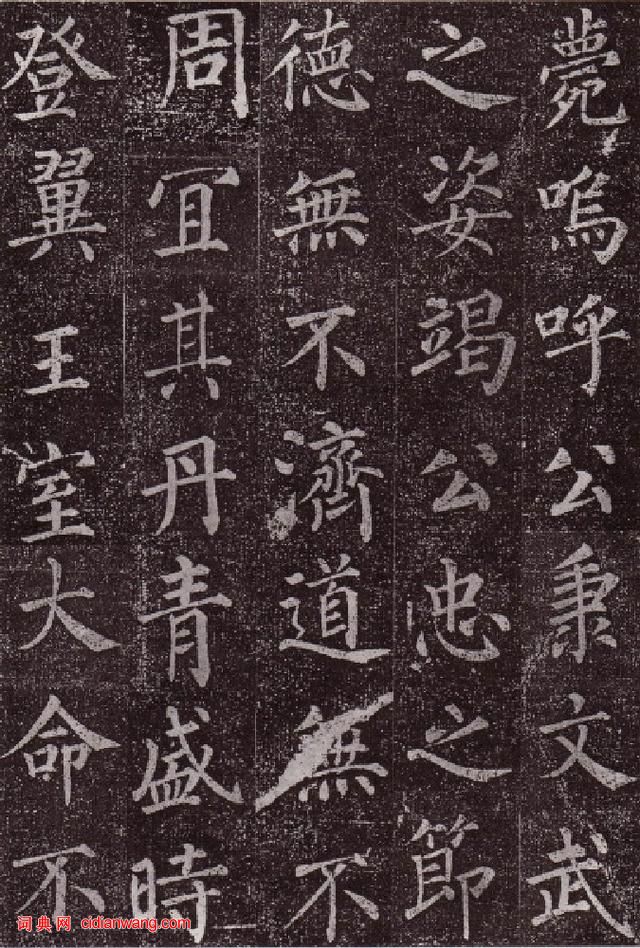 薨嗚呼公秉文武
之姿竭公忠之節
德無不濟道無不
周冝其丹青盛時
登翼王室大命不
词典网 cidianwang.com